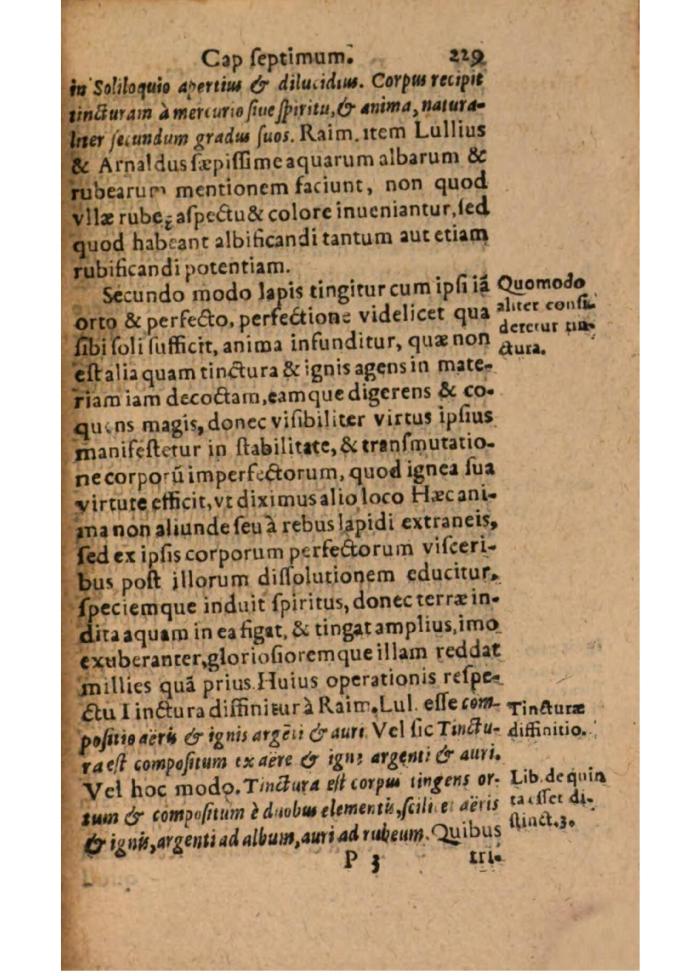 Cap septimum. 229
in Soliloquio apertius & dilucidius. Corpus recipit
tincturam à mercurio siue spiritu, & anima, natura-
liter secundum gradus suos. Raim. item Lullius
& Arnaldus sæpissime aquarum albarum &
rubearum mentionem faciunt, non quod
vllæ rubeę aspectu & colore inueniantur, sed
quod habeant albificandi tantum aut etiam
rubificandi potentiam.
Secundo modo lapis tingitur cum ipsi iã
orto & perfecto, perfectione videlicet qua
sibi soli sufficit, anima infunditur, quæ non
est alia quam tinctura & ignis agens in mate-
riam iam decoctam, eamque digerens & co-
quens magis, donec visibiliter virtus ipsius
manifestetur in stabilitate, & transmutatio-
ne corporũ imperfectorum, quod ignea sua
virtute efficit, vt diximus alio loco Hæc ani-
ma non aliunde seu à rebus lapidi extraneis,
sed ex ipsis corporum perfectorum visceri-
bus post illorum dissolutionem educitur,
speciemque induit spiritus, donec terræ in-
dita aquam in ea figat, & tingat amplius, imo
exuberanter, gloriosioremque illam reddat
millies quã prius. Huius operationis respe-
ctu Tinctura diffinitur à Raim. Lul. esse com-
positio aëris & ignis argẽti & auri. Vel sic Tinctu-
ra est compositum ex aëre & igne argenti & auri.
Vel hoc modo. Tinctura est corpus tingens or-
tum & compositum è duobus elementis, scilicet aëris
& ignis, argenti ad album, auri ad rubeum. Quibus
P 3 tri-
Quomodo
aliter consi-
deretur tin-
ctura.
Tincturæ
diffinitio.
Lib. de quin
ta esset di-
stinct. 3.